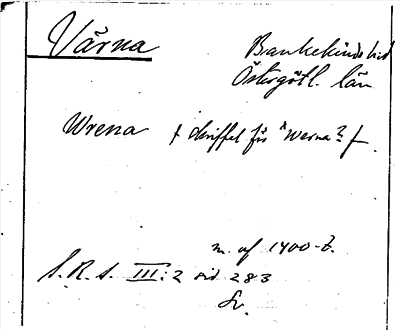 Värna
Bankekinds hd
Östergötl. län
Wrena ⨍ skriffel för *Werna? ⨍
m. af 1400-t.
S. R. S. III: 2 sid 283